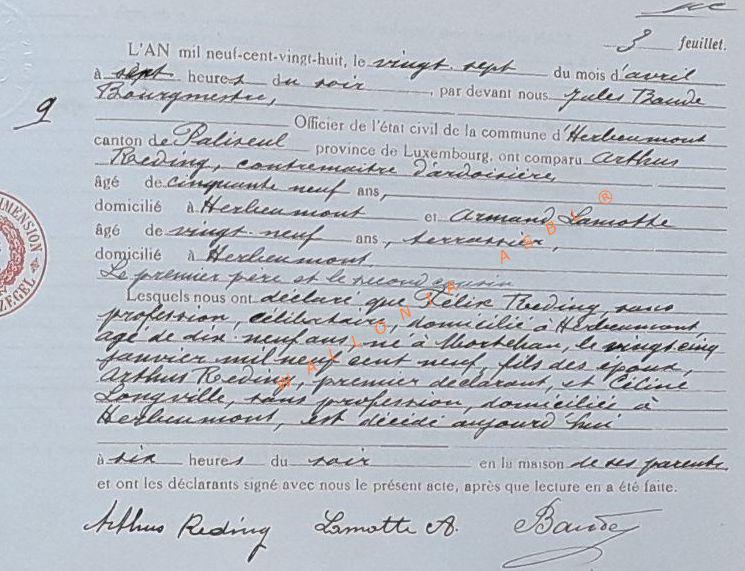 3 feuillet.
L'AN mil neuf-cent-vingt-huit, le vingt sept du mois d'avril
à sept heures du soir, par devant nous Jules Baude
Bourgmestre,
9
Officier de l'état civil de la commune d'Herbeumont
canton de Paliseul province de Luxembourg, ont comparu Arthur
Reding, contremaître d'ardoisière,
âgé de cinquante neuf ans,
domicilié à Herbeumont et Armand Lamotte
âgé de vingt neuf ans, terrassier,
domicilié à Herbeumont
Le premier père et le second cousin
Lesquels nous ont déclaré que Félix Reding, sans
profession, célibataire, domicilié à Herbeumont,
âgé de dix neuf ans, né à Mortehan, le vingt cinq
janvier mil neuf cent neuf, fils des époux,
Arthur Reding, premier déclarant, et Céline
Longville, sans profession, domiciliés à
Herbeumont, est décédé aujourd'hui
à six heures du soir en la maison de ses parents
et ont les déclarants signé avec nous le présent acte, après que lecture en a été faite.
Arthur Reding Lamotte A. Baude
WALLONIA ASBL ®
DIMENSION
ZEGEL